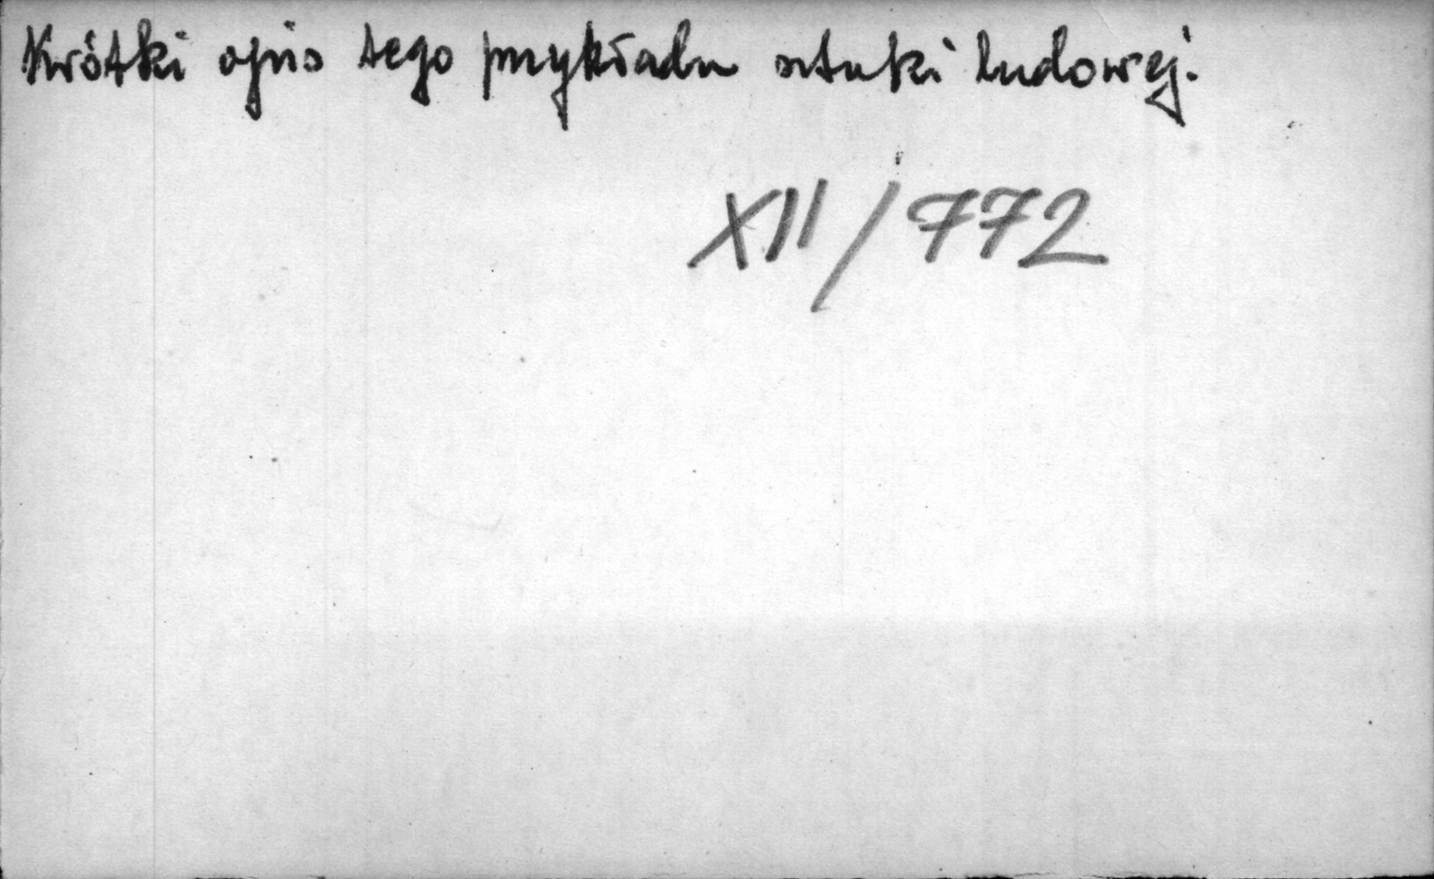 Krótki opis tego przykładu sztuki ludowej.
XII/772